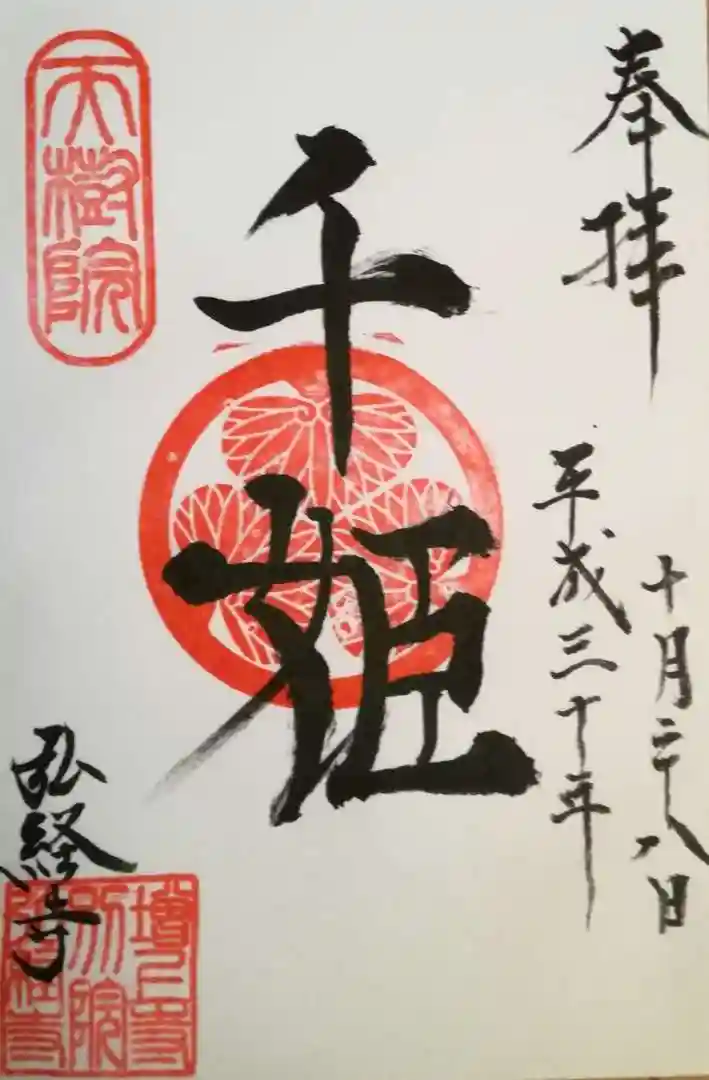 奉拝
十月二十八日
平成三十年
千姫
天樹院
弘経寺
増上寺
別院